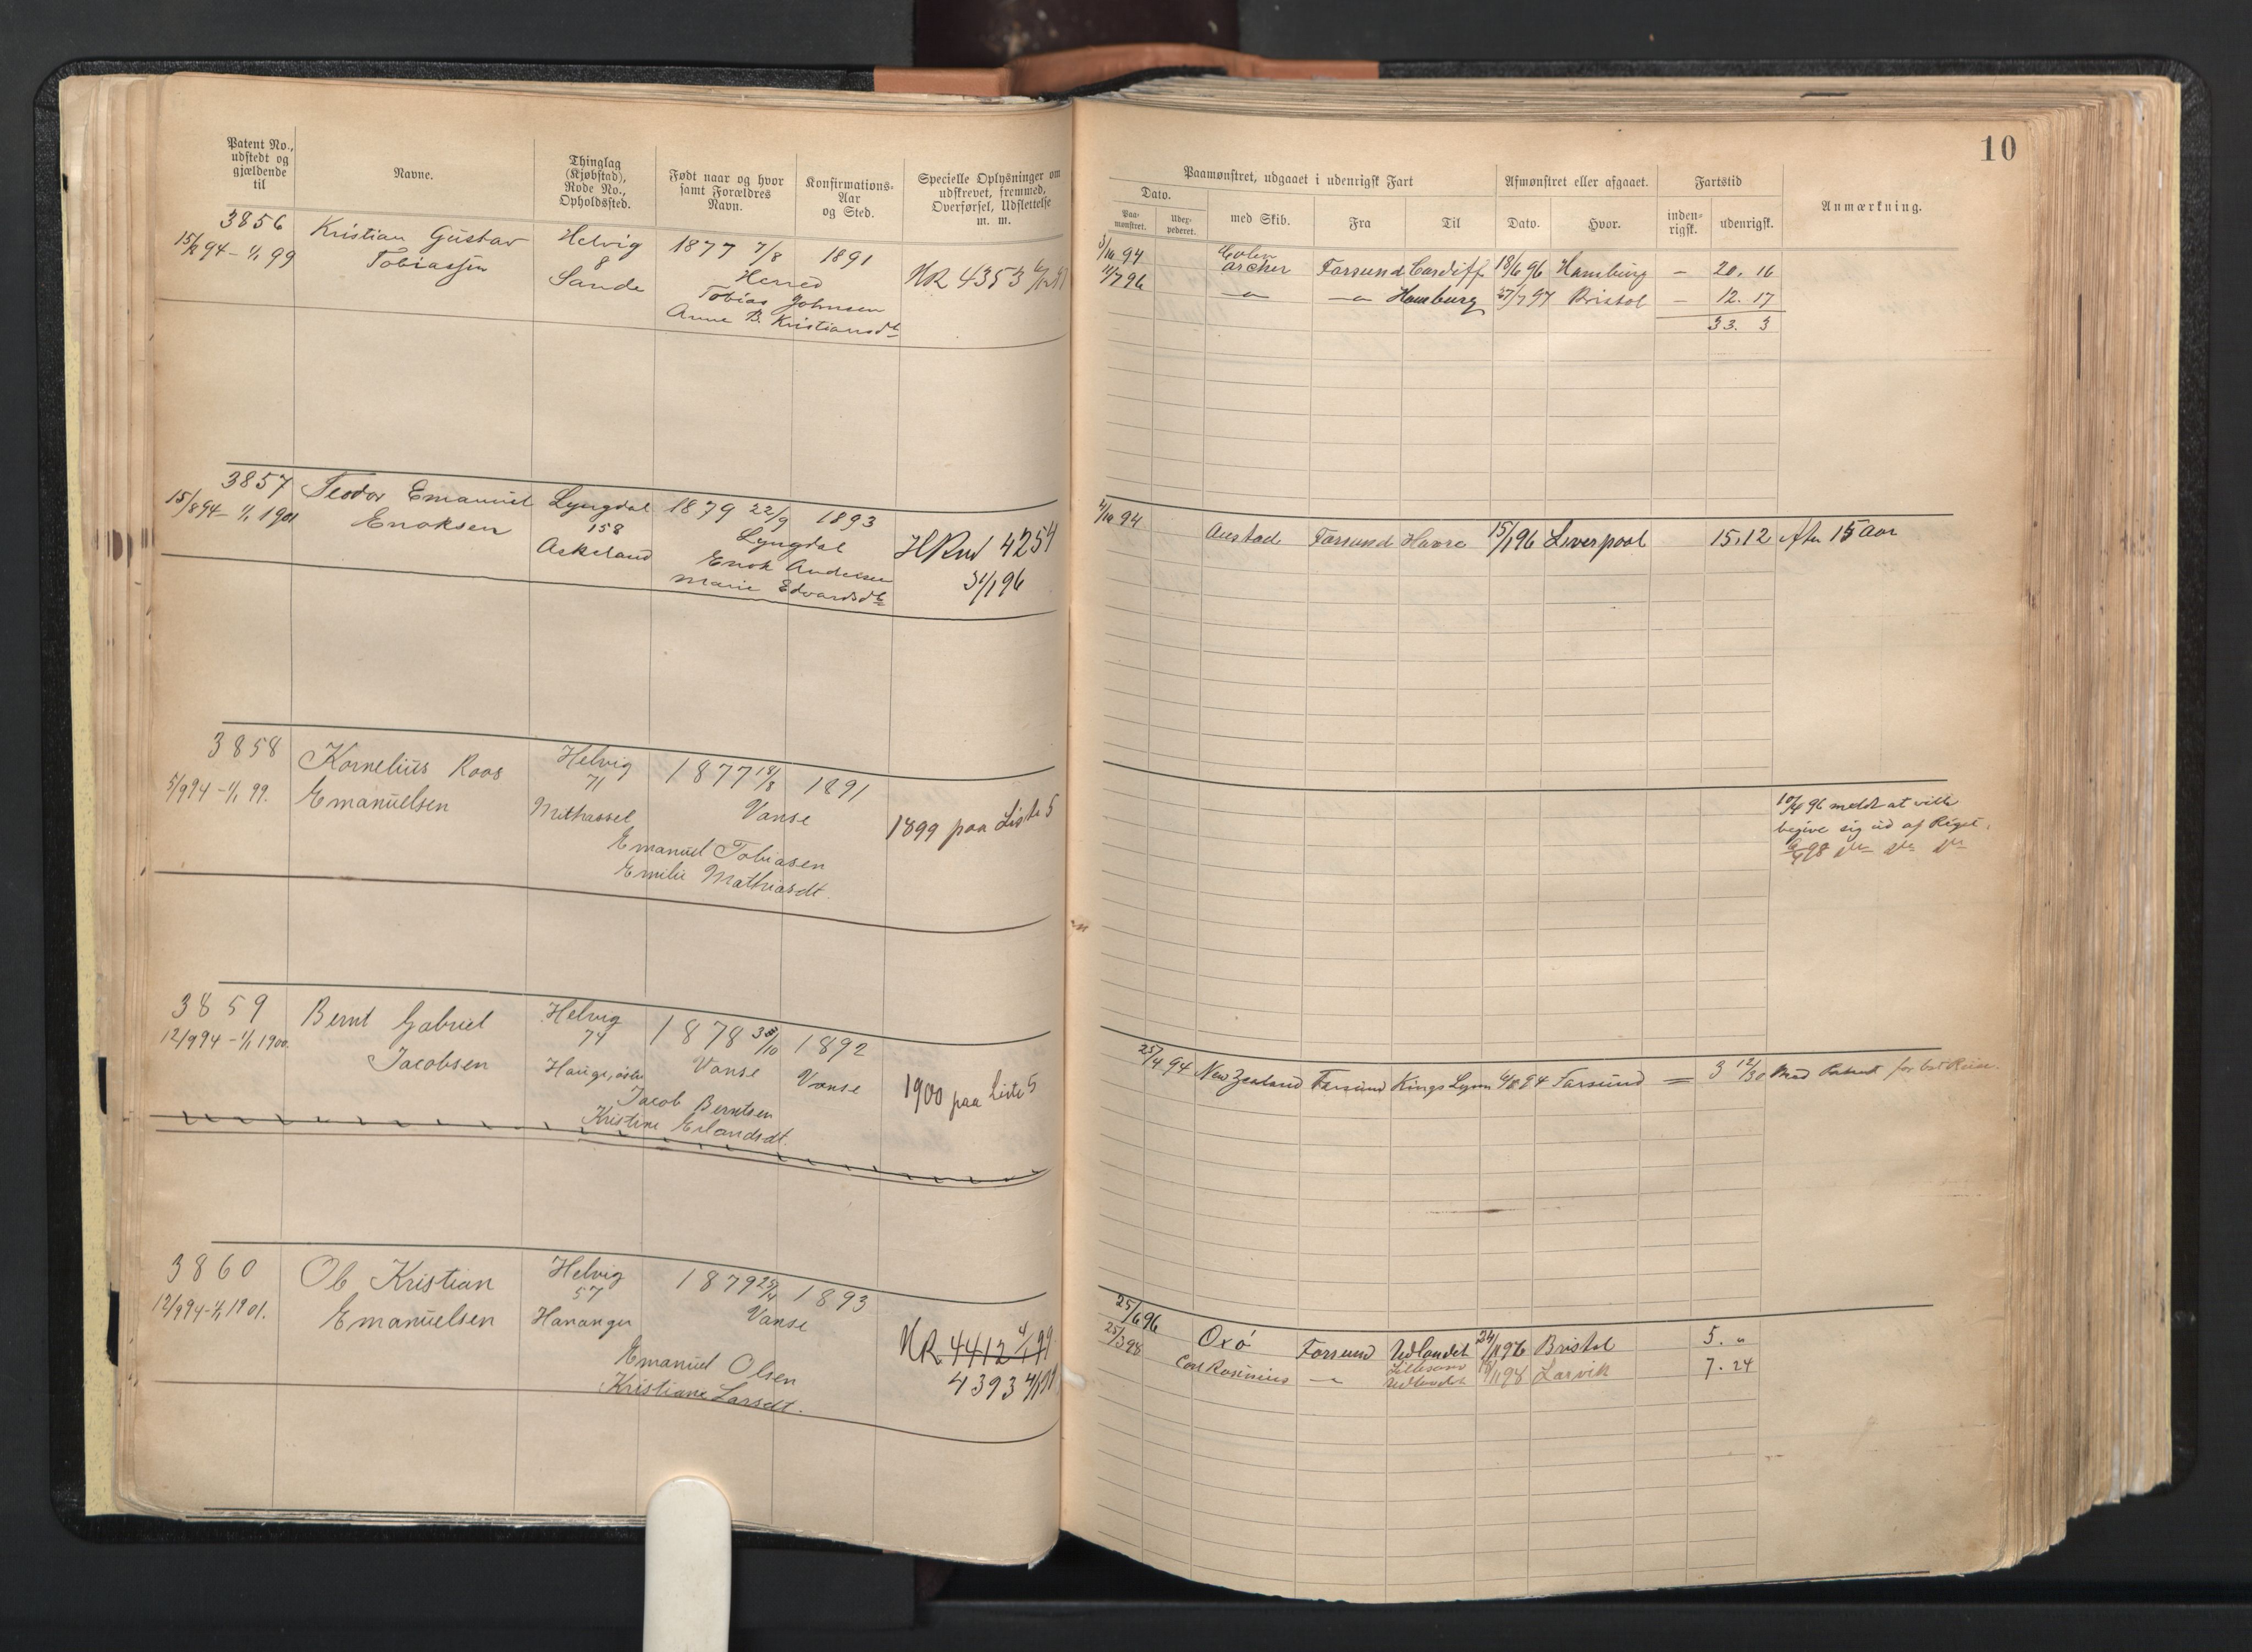 10
Patent No., udstedt og gjældende til
Navne.
Thinglag (Kjøbstad), Rode No., Opholdssted.
Født naar og hvor samt Forældres Navn.
Konfirmations-Aar og Sted.
Specielle Oplysninger om udskrevet, fremmed, Overførsel, Udslettelse m. m.
Paamønstret, udgaaet i udenrigsk Fart
Dato.
Paa-mønstret.
Udex-pederet.
med Skib.
Fra
Til
Afmønstret eller afgaaet.
Dato.
Hvor.
Fartstid
inden-rigsk.
udenrigsk.
Anmærkning.
3856
15/8 94 - 1/1 99
Kristian Gustav
Tobiassen
Helvig
8
Sande
1877 7/8
Herred
Tobias Johnsen
Anne B. Kristiansdt
1891
HR 4353
3/10 94
Colin Archer
Farsund
Cardiff
18/6 96
Hamburg
-
20. 16
11/7 96
-"-
-"-
Hamburg
27/7 97
Bristol
-
12. 17
33. 3
3857
15/8 94 - 1/1 1901
Teodor Emanuel
Enoksen
Lyngdal
158
Askeland
1879 22/9
Lyngdal
Enok Andersen
Marie Edvardsdt
1893
HRul 4254
31/1 96
4/10 94
Austad
Farsund
Havre
15/1 96
Liverpool
15.12
3858
5/9 94 - 1/1 99.
Kornelius Roos
Emanuelsen
Helvig
71
Methassel
1877 18/8
Vanse
Emanuel Tobiasen
Emilie Mathiasdt.
1891
1899 paa Liste 5
96 meldt at ville
begive sig ud af Riget.
98
3859
12/9 94 - 1/1 1900.
Bernt Gabriel
Jacobsen
Helvig
74
Hauge, østre
1878 /10
Vanse
Jacob Berntsen
Kristine Erlandsdt.
1892
Vanse
1900 paa Liste 5
25/4 94
New Zealand
Farsund
Kings Lynn
94
Farsund
=
3 12/30
Med Patent for
3860
12/9 94 - 1/1 1901.
Ole Kristian
Emanuelsen
Helvig
57
Hananger
1879 25/4
Vanse
Emanuel Olsen
Kristiane Larsdt.
1893
HR 4412 4/1 99
4393 4/1 99
25/6 96
Oxö
Farsund
Udlandet
24/11 96
Bristol
5. "
25/3 98
Carl Rosinius
-"-
Lillesand
Udlandet
98
Larvik
7. 24